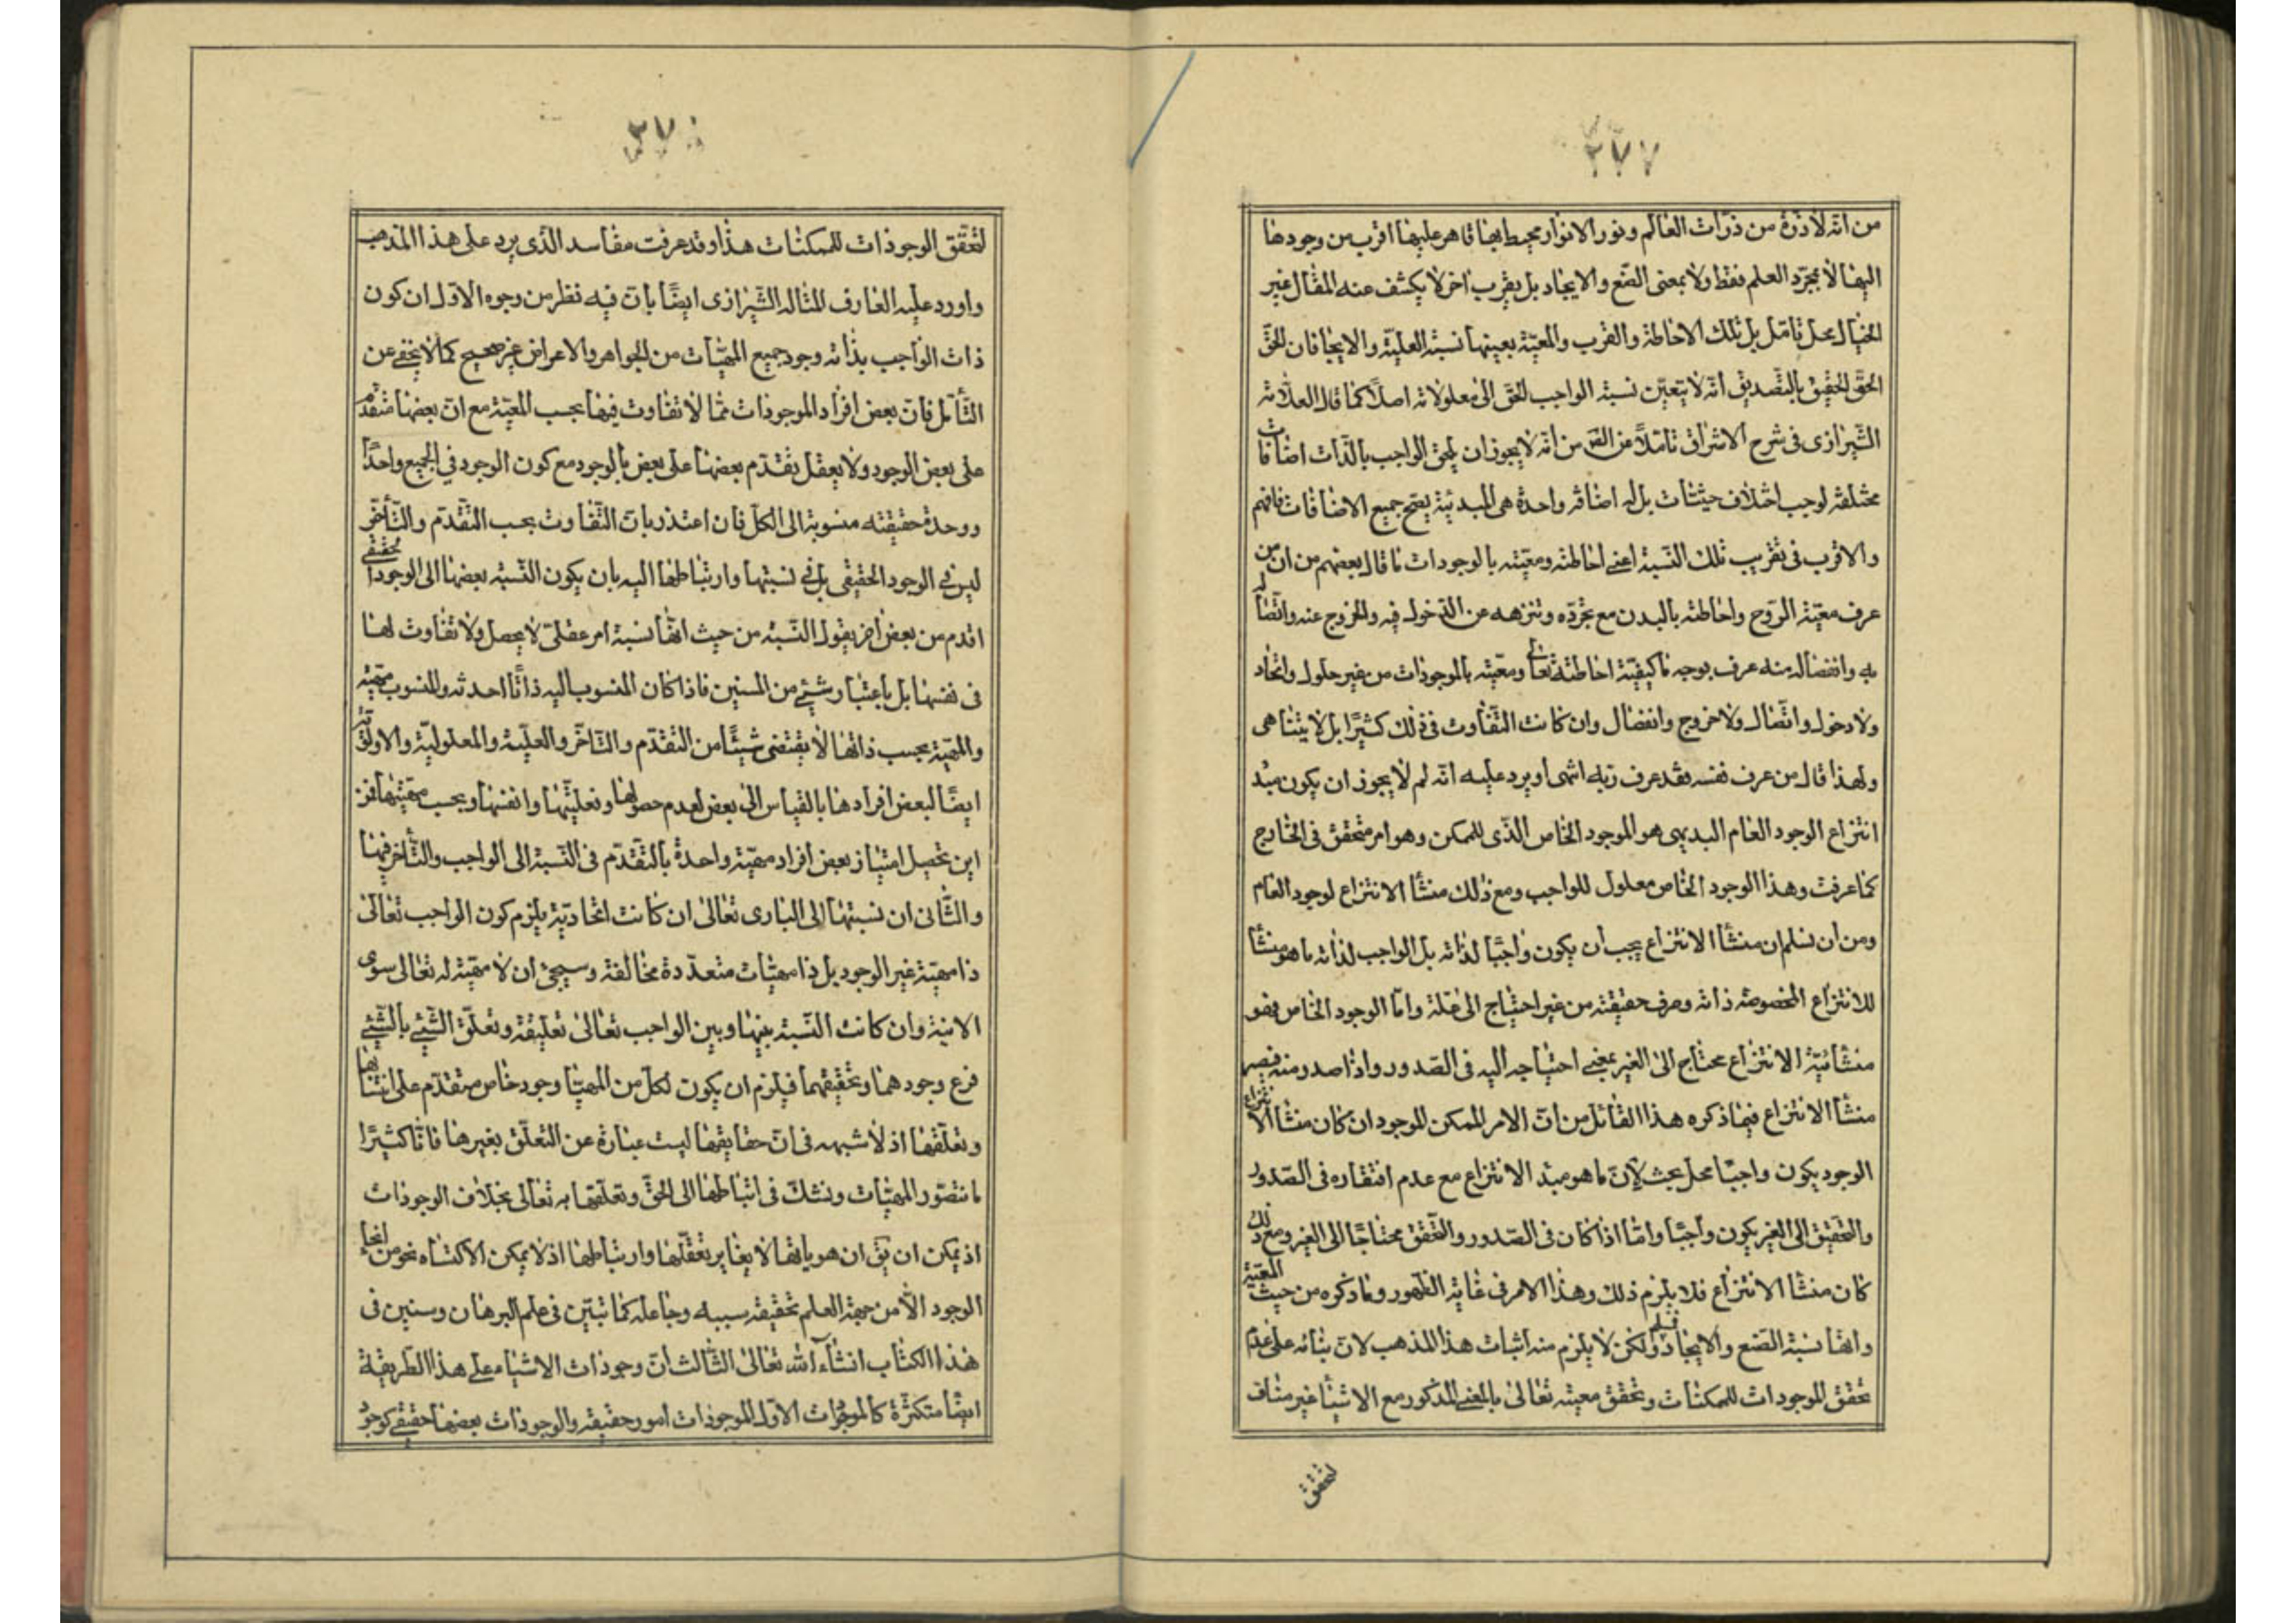 ٢٧٧
من انّه لا ذرّة من ذرّات العالم و نور الانوار محيط بها قاهر عليها اقرب من وجودها
اليها لا بمجرّد العلم فقط ولا بمعنى الصّنع والايجاد بل بقرب اخر لا يكشف عنه المقال غير
الخيال محل تامّل بل تلك الاحاطة والقرب والمعيّة بعينها نسبة العليّة والايجا فان الحقّ
الحقّ الحقيق بالتّصديق انّه لا يتعيّن نسبة الواجب الحقّ الى معلولاته اصلًا كما قال العلّامة
الشّيرازى فى شرح الاشراق من انّه لا يجوز ان يلحق الواجب بالذّات اضافات
مختلفة لوجب اختلاف حيثيّات بل له اضافة واحدة هى المبدئيّة يصحّ جميع الاضافات فافهم
والاقرب فى تقريب تلك النّسبة اعنى احاطته ومعيّته بالوجودات ما قال بعضهم من ان من
عرف معيّة الرّوح واحاطته بالبدن مع تجرّده و تنزهه عن الدّخول فيه والخروج عنه واتّصاله
به وانفصاله منه عرف بوجه ما كيفيّة احاطته تعالى ومعيّته بالموجودات من غير حلول واتّحاد
ولا دخول واتّصال ولا خروج وانفصال وان كانت التّفاوت فى ذلك كثيرًا بل لا يتناهى
ولهذا قال من عرف نفسه فقد عرف ربّه انتهى اويرد عليه انّه لم لا يجوز ان يكون مبدء
انتزاع الوجود العام البديهى هو الموجود الخاص الذّى للممكن وهو امر متحقق فى الخارج
كما عرفت وهذا الوجود الخاص معلول للواجب ومع ذلك منشأ الانتزاع لوجود العام
ومن ان نسلم ان منشأ الانتزاع يجب ان يكون واجبًا لذاته بل الواجب لذاته ما هو منشأ
للانتزاع المخصوصة ذاته وصرف حقيقته من غير احتياج الى علّة وامّا الوجود الخاص فهو
منشأئيّة الانتزاع محتاج الى الغير بمعنى احتياجه اليه فى الصّدور واذا صدر منه فيصير
منشأ الانتزاع فيما ذكره هذا القائل من انّ الامر الممكن الموجود ان كان منشأ الانتزاع
الوجود يكون واجبًا محل بحث لانّ ما هو مبدء الانتزاع مع عدم افتقاره فى الصّدور
والتّحقيق الى الغير يكون واجبًا وامّا اذا كان فى الصّدور والتّحقق محتاجًا الى الغير ومع ذلك
كان منشأ الانتزاع فلا يلزم ذلك وهذا الامر فى غاية الظّهور وما ذكره من حيث المعيّة
وانّها نسبة الصّنع والايجاد فمسلم ولكن لا يلزم منه اثبات هذا المذهب لانّ بنائه على عدم
تحقق الموجودات للممكنات وتحقق معيته تعالى بالمعنى المذكور مع الاشيأ غير مناف
لتحقق
٢٧٠
لتحقّق الوجودات للممكنات هذا وقد عرفت مفاسد الذّى يرد على هذا المذهب
واورد عليه العارف المتاله الشّيرازى ايضًا بان فيه نظر من وجوه الاوّل ان كون
ذات الواجب بذاته وجود جميع المهيّات من الجواهر والاعراض غير صحيح كما لا يخفى عن
التّأمّل فانّ بعض افراد الموجودات ممّا لا تفاوت فيها بحسب المعيّة مع انّ بعضها متقدّم
على بعض الوجود ولا يعقل تقدّم بعضها على بعض بالوجود مع كون الوجود فى الجميع واحدًا
ووحدة حقيقته منسوبة الى الكلّ فان اعتذر بانّ التّفاوت بحسب التّقدّم والتّأخّر
ليس فى الوجود الحقيقى بل فى نسبتها وارتباطها اليه بان يكون النّسبة بعضها الى الوجود الحقيقى
اقدم من بعض اخر يقول النّسبة من حيث انّها نسبة امر عقلىّ لا يحصل ولا تفاوت لها
فى نفسها بل باعتبار شيئ من المنسبين فاذا كان المنسوب اليه ذاتًا احدثه والمنسوب مهيّة
والمهيّة بحسب ذاتها لا يقتضى شيئًا من التّقدّم والتّاخّر والعليّة والمعلوليّة والاولويّة
ايضًا لبعض افرادها بالقياس الى بعض لعدم حصولها وفعليّتها وانفسها وبحسب مهيّتها فمن
اين تحصيل امتياز بعض افراد مهيّة واحدة بالتّقدّم فى النّسبة الى الواجب والتّأخر فيها
والثّانى ان نسبتها الى البارى تعالى ان كانت اتحاديّة يلزم كون الواجب تعالى
ذا مهيّة غير الوجود بل ذا مهيّات متعدّدة مخالفة وسيجئ ان لا مهيّة له تعالى سوى
الانية وان كانت النّسبة بينها وبين الواجب تعالى تعليقة وتعلّق الشّيئ بالشّيئ
فرع وجودهما وتحقيقهما فيلزم ان يكون لكلّ من المهيّا وجود خاص متقدّم على انتسابها
وتعلّقها اذ لا شبهه فى انّ حقايقها ليست عبارة عن التعلّق بغيرها فانّا كثيرًا
ما نتصّور المهيّات ونشكّ فى ارتباطها الى الحقّ وتعلّقها به تعالى بخلاف الوجودات
اذ يمكن ان يق ان هوياتها لا يغاير تعقّلها وارتباطها اذ لا يمكن الاكتناه نحو من انحاء
الوجود الّا من جهة العلم بحقيقة سببه وجاعله كما تبيّن فى علم البرهان وسنين فى
هذا الكتاب انشأ الله تعالى الثّالث انّ وجودات الاشياء على هذا الطّريقة
ايضًا متكثّرة كالموجودات الاوّل الموجودات امور حقيقة والوجودات بعضها حقيقى كوجود